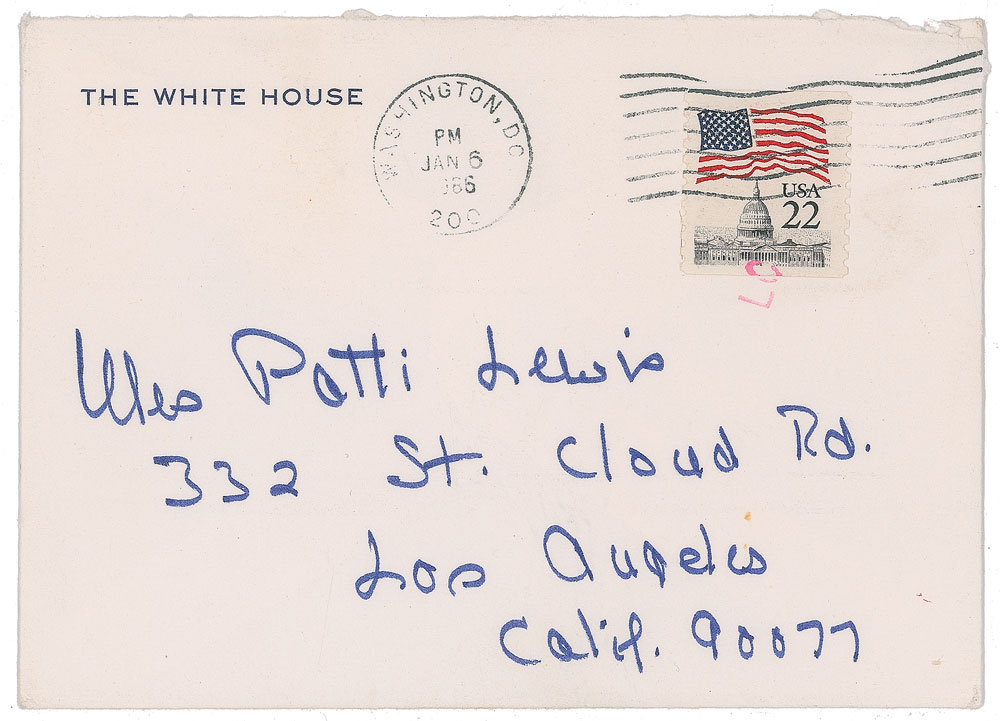 THE WHITE HOUSE
WASHINGTON, DC
PM
JAN 6
986
200
USA
22
Mrs Patti Lewis
332 St. Cloud Rd.
Los Angeles
Calif. 90077